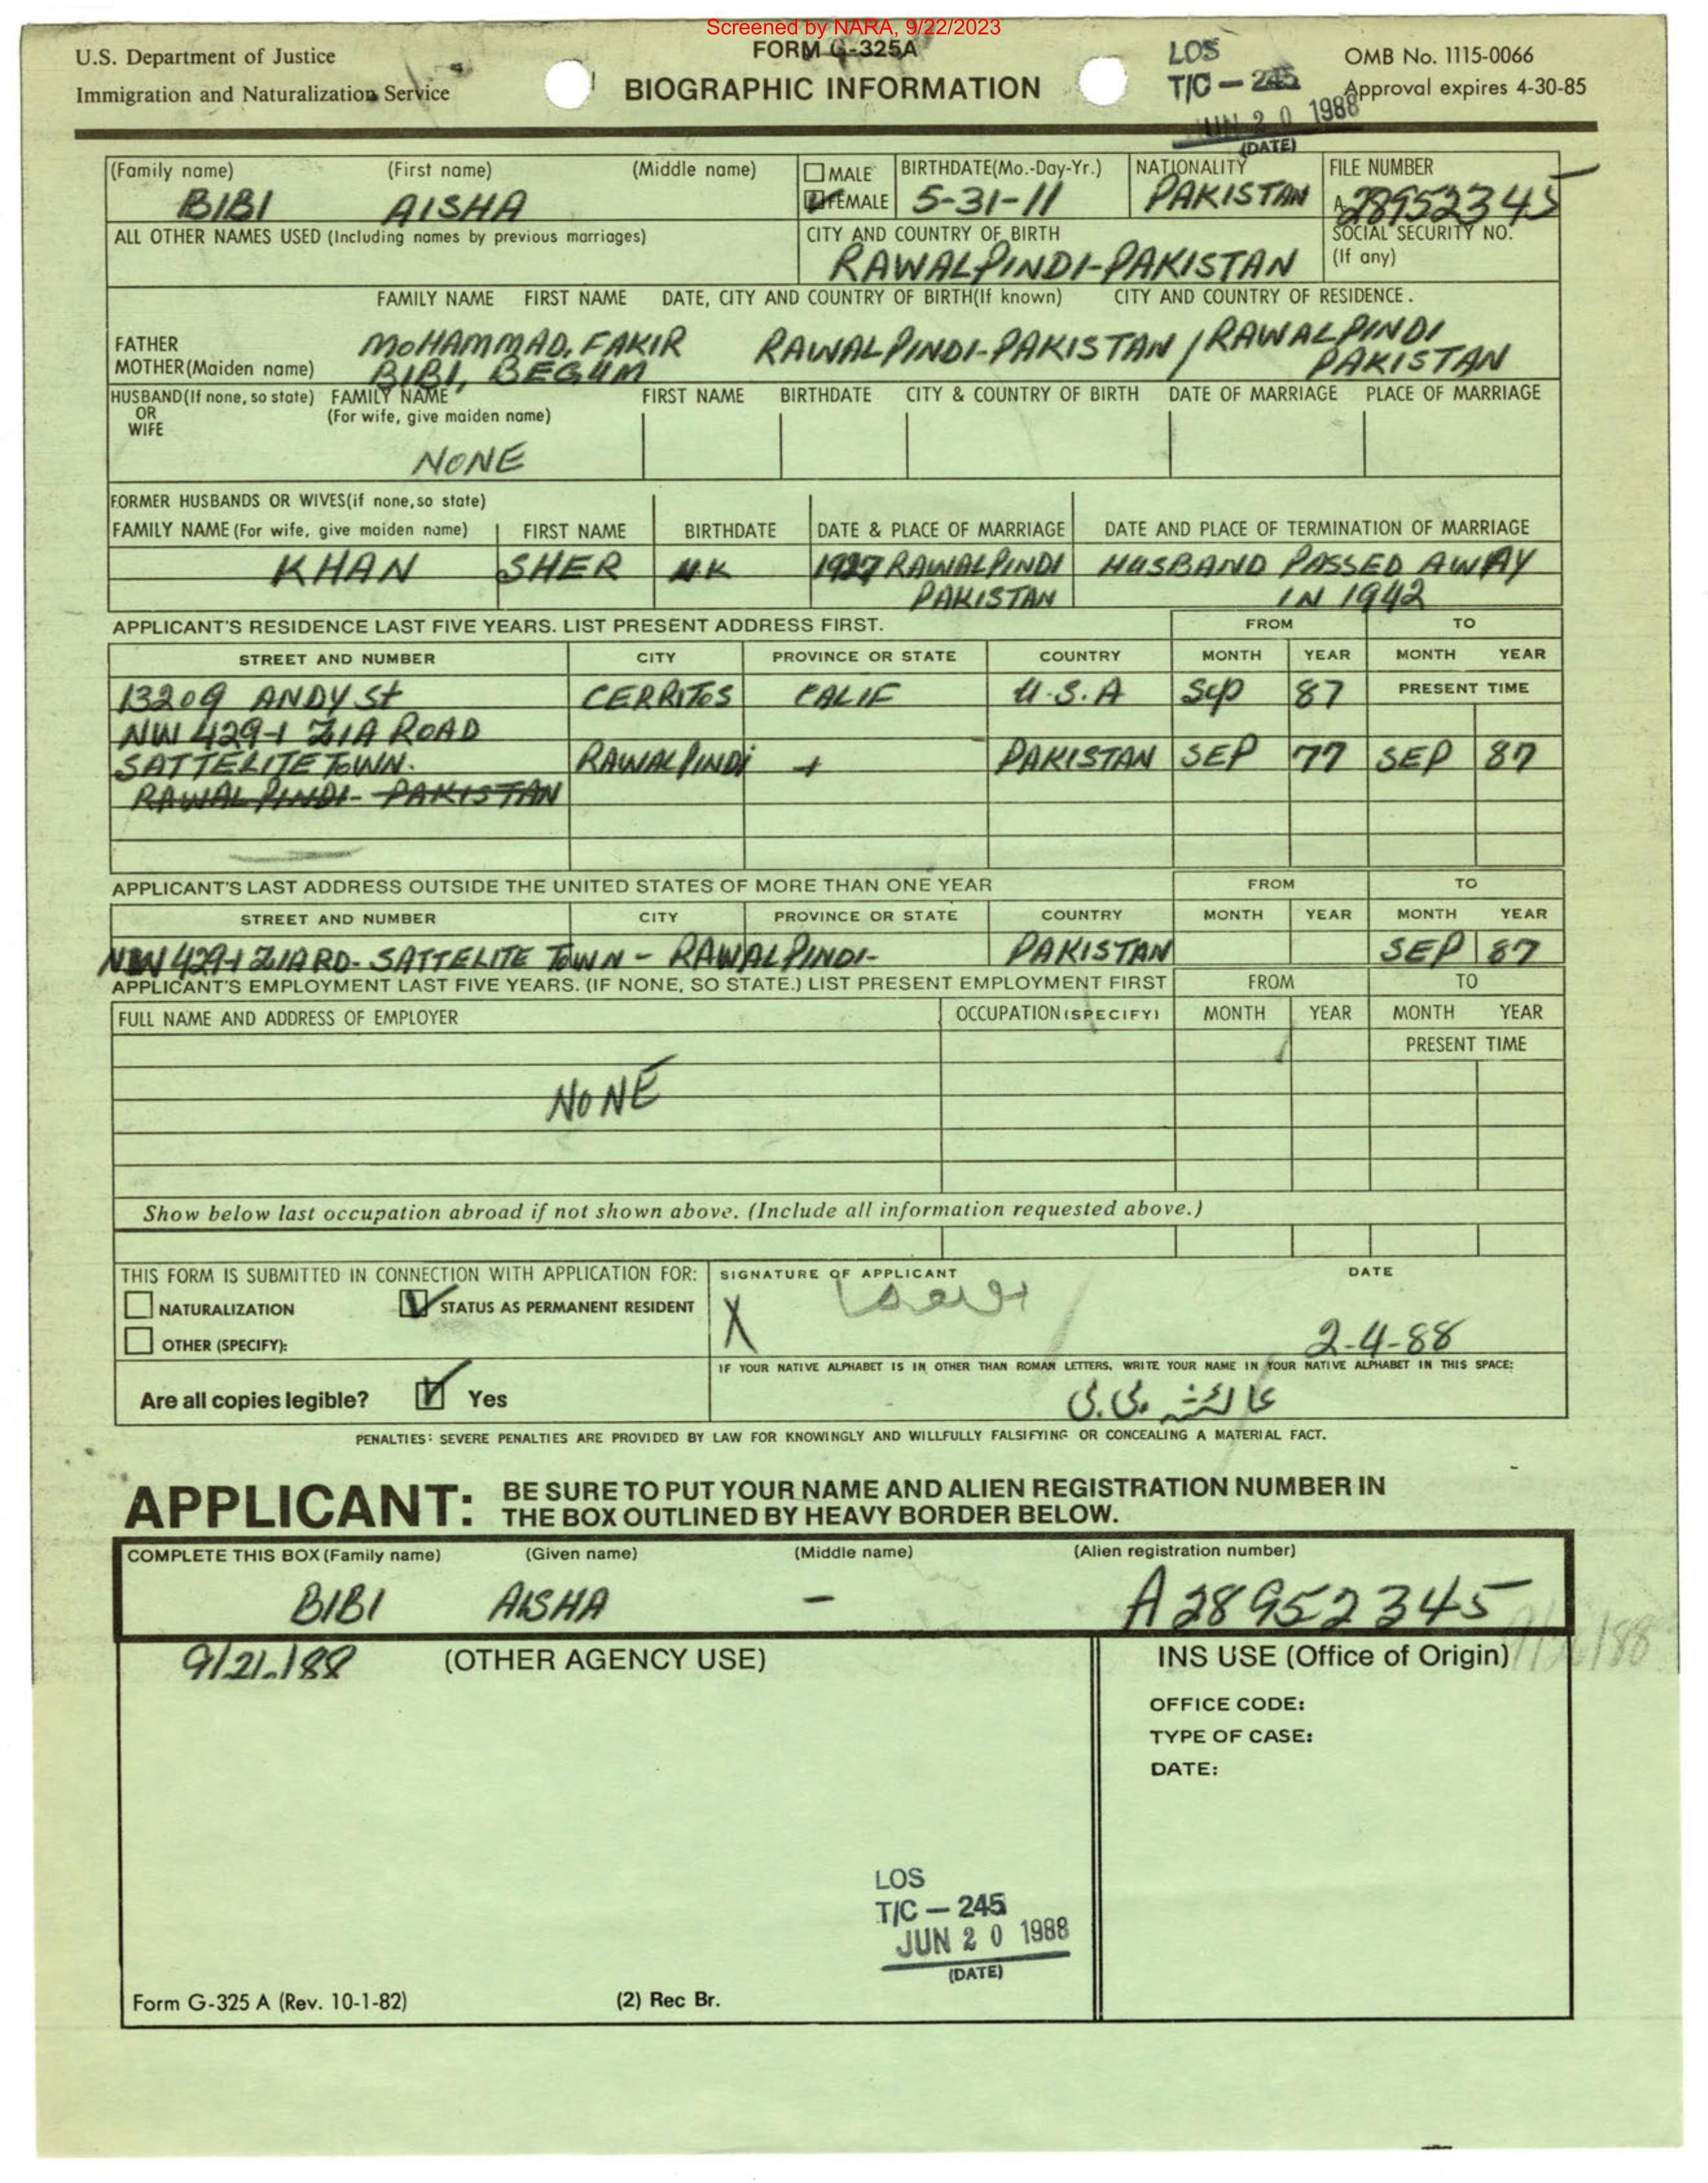 Screened by NARA, 9/22/2023
U.S. Department of Justice
Immigration and Naturalization Service
FORM G-325A
BIOGRAPHIC INFORMATION
LOS
T/C — 245
JUN 20 1988
(DATE)
OMB No. 1115-0066
Approval expires 4-30-85
(Family name) (First name) (Middle name)
BIBI AISHA
MALE
FEMALE
BIRTHDATE(Mo.-Day-Yr.)
5-31-11
NATIONALITY
PAKISTAN
FILE NUMBER
A28952345
ALL OTHER NAMES USED (Including names by previous marriages)
CITY AND COUNTRY OF BIRTH
RAWALPINDI-PAKISTAN
SOCIAL SECURITY NO.
(If any)
FAMILY NAME FIRST NAME DATE, CITY AND COUNTRY OF BIRTH(If known) CITY AND COUNTRY OF RESIDENCE.
FATHER MOHAMMAD, FAKIR RAWALPINDI-PAKISTAN / RAWALPINDI
MOTHER(Maiden name) BIBI, BEGUM PAKISTAN
HUSBAND(If none, so state) FAMILY NAME FIRST NAME BIRTHDATE CITY & COUNTRY OF BIRTH DATE OF MARRIAGE PLACE OF MARRIAGE
OR (For wife, give maiden name)
WIFE
NONE
FORMER HUSBANDS OR WIVES(if none, so state)
FAMILY NAME (For wife, give maiden name) FIRST NAME BIRTHDATE DATE & PLACE OF MARRIAGE DATE AND PLACE OF TERMINATION OF MARRIAGE
KHAN SHER UK 1927 RAWALPINDI HUSBAND PASSED AWAY
PAKISTAN IN 1942
APPLICANT'S RESIDENCE LAST FIVE YEARS. LIST PRESENT ADDRESS FIRST. FROM TO
STREET AND NUMBER CITY PROVINCE OR STATE COUNTRY MONTH YEAR MONTH YEAR
13209 ANDY St CERRITOS CALIF U.S.A Sep 87 PRESENT TIME
NW 429-1 ZIA ROAD
SATTELITE TOWN. RAWALPINDI + PAKISTAN SEP 77 SEP 87
RAWALPINDI- PAKISTAN
APPLICANT'S LAST ADDRESS OUTSIDE THE UNITED STATES OF MORE THAN ONE YEAR FROM TO
STREET AND NUMBER CITY PROVINCE OR STATE COUNTRY MONTH YEAR MONTH YEAR
NW 429-1 ZIA RD- SATTELITE TOWN - RAWALPINDI- PAKISTAN SEP 87
APPLICANT'S EMPLOYMENT LAST FIVE YEARS. (IF NONE, SO STATE.) LIST PRESENT EMPLOYMENT FIRST FROM TO
FULL NAME AND ADDRESS OF EMPLOYER OCCUPATION (SPECIFY) MONTH YEAR MONTH YEAR
PRESENT TIME
NONE
Show below last occupation abroad if not shown above. (Include all information requested above.)
THIS FORM IS SUBMITTED IN CONNECTION WITH APPLICATION FOR:
NATURALIZATION STATUS AS PERMANENT RESIDENT
OTHER (SPECIFY):
SIGNATURE OF APPLICANT DATE
X
2-4-88
Are all copies legible? Yes
IF YOUR NATIVE ALPHABET IS IN OTHER THAN ROMAN LETTERS, WRITE YOUR NAME IN YOUR NATIVE ALPHABET IN THIS SPACE:
عائشہ بی بی
PENALTIES: SEVERE PENALTIES ARE PROVIDED BY LAW FOR KNOWINGLY AND WILLFULLY FALSIFYING OR CONCEALING A MATERIAL FACT.
APPLICANT: BE SURE TO PUT YOUR NAME AND ALIEN REGISTRATION NUMBER IN
THE BOX OUTLINED BY HEAVY BORDER BELOW.
COMPLETE THIS BOX (Family name) (Given name) (Middle name) (Alien registration number)
BIBI AISHA - A28952345
9/21/88 (OTHER AGENCY USE)
INS USE (Office of Origin)
OFFICE CODE:
TYPE OF CASE:
DATE:
LOS
T/C — 245
JUN 20 1988
(DATE)
Form G-325 A (Rev. 10-1-82) (2) Rec Br.